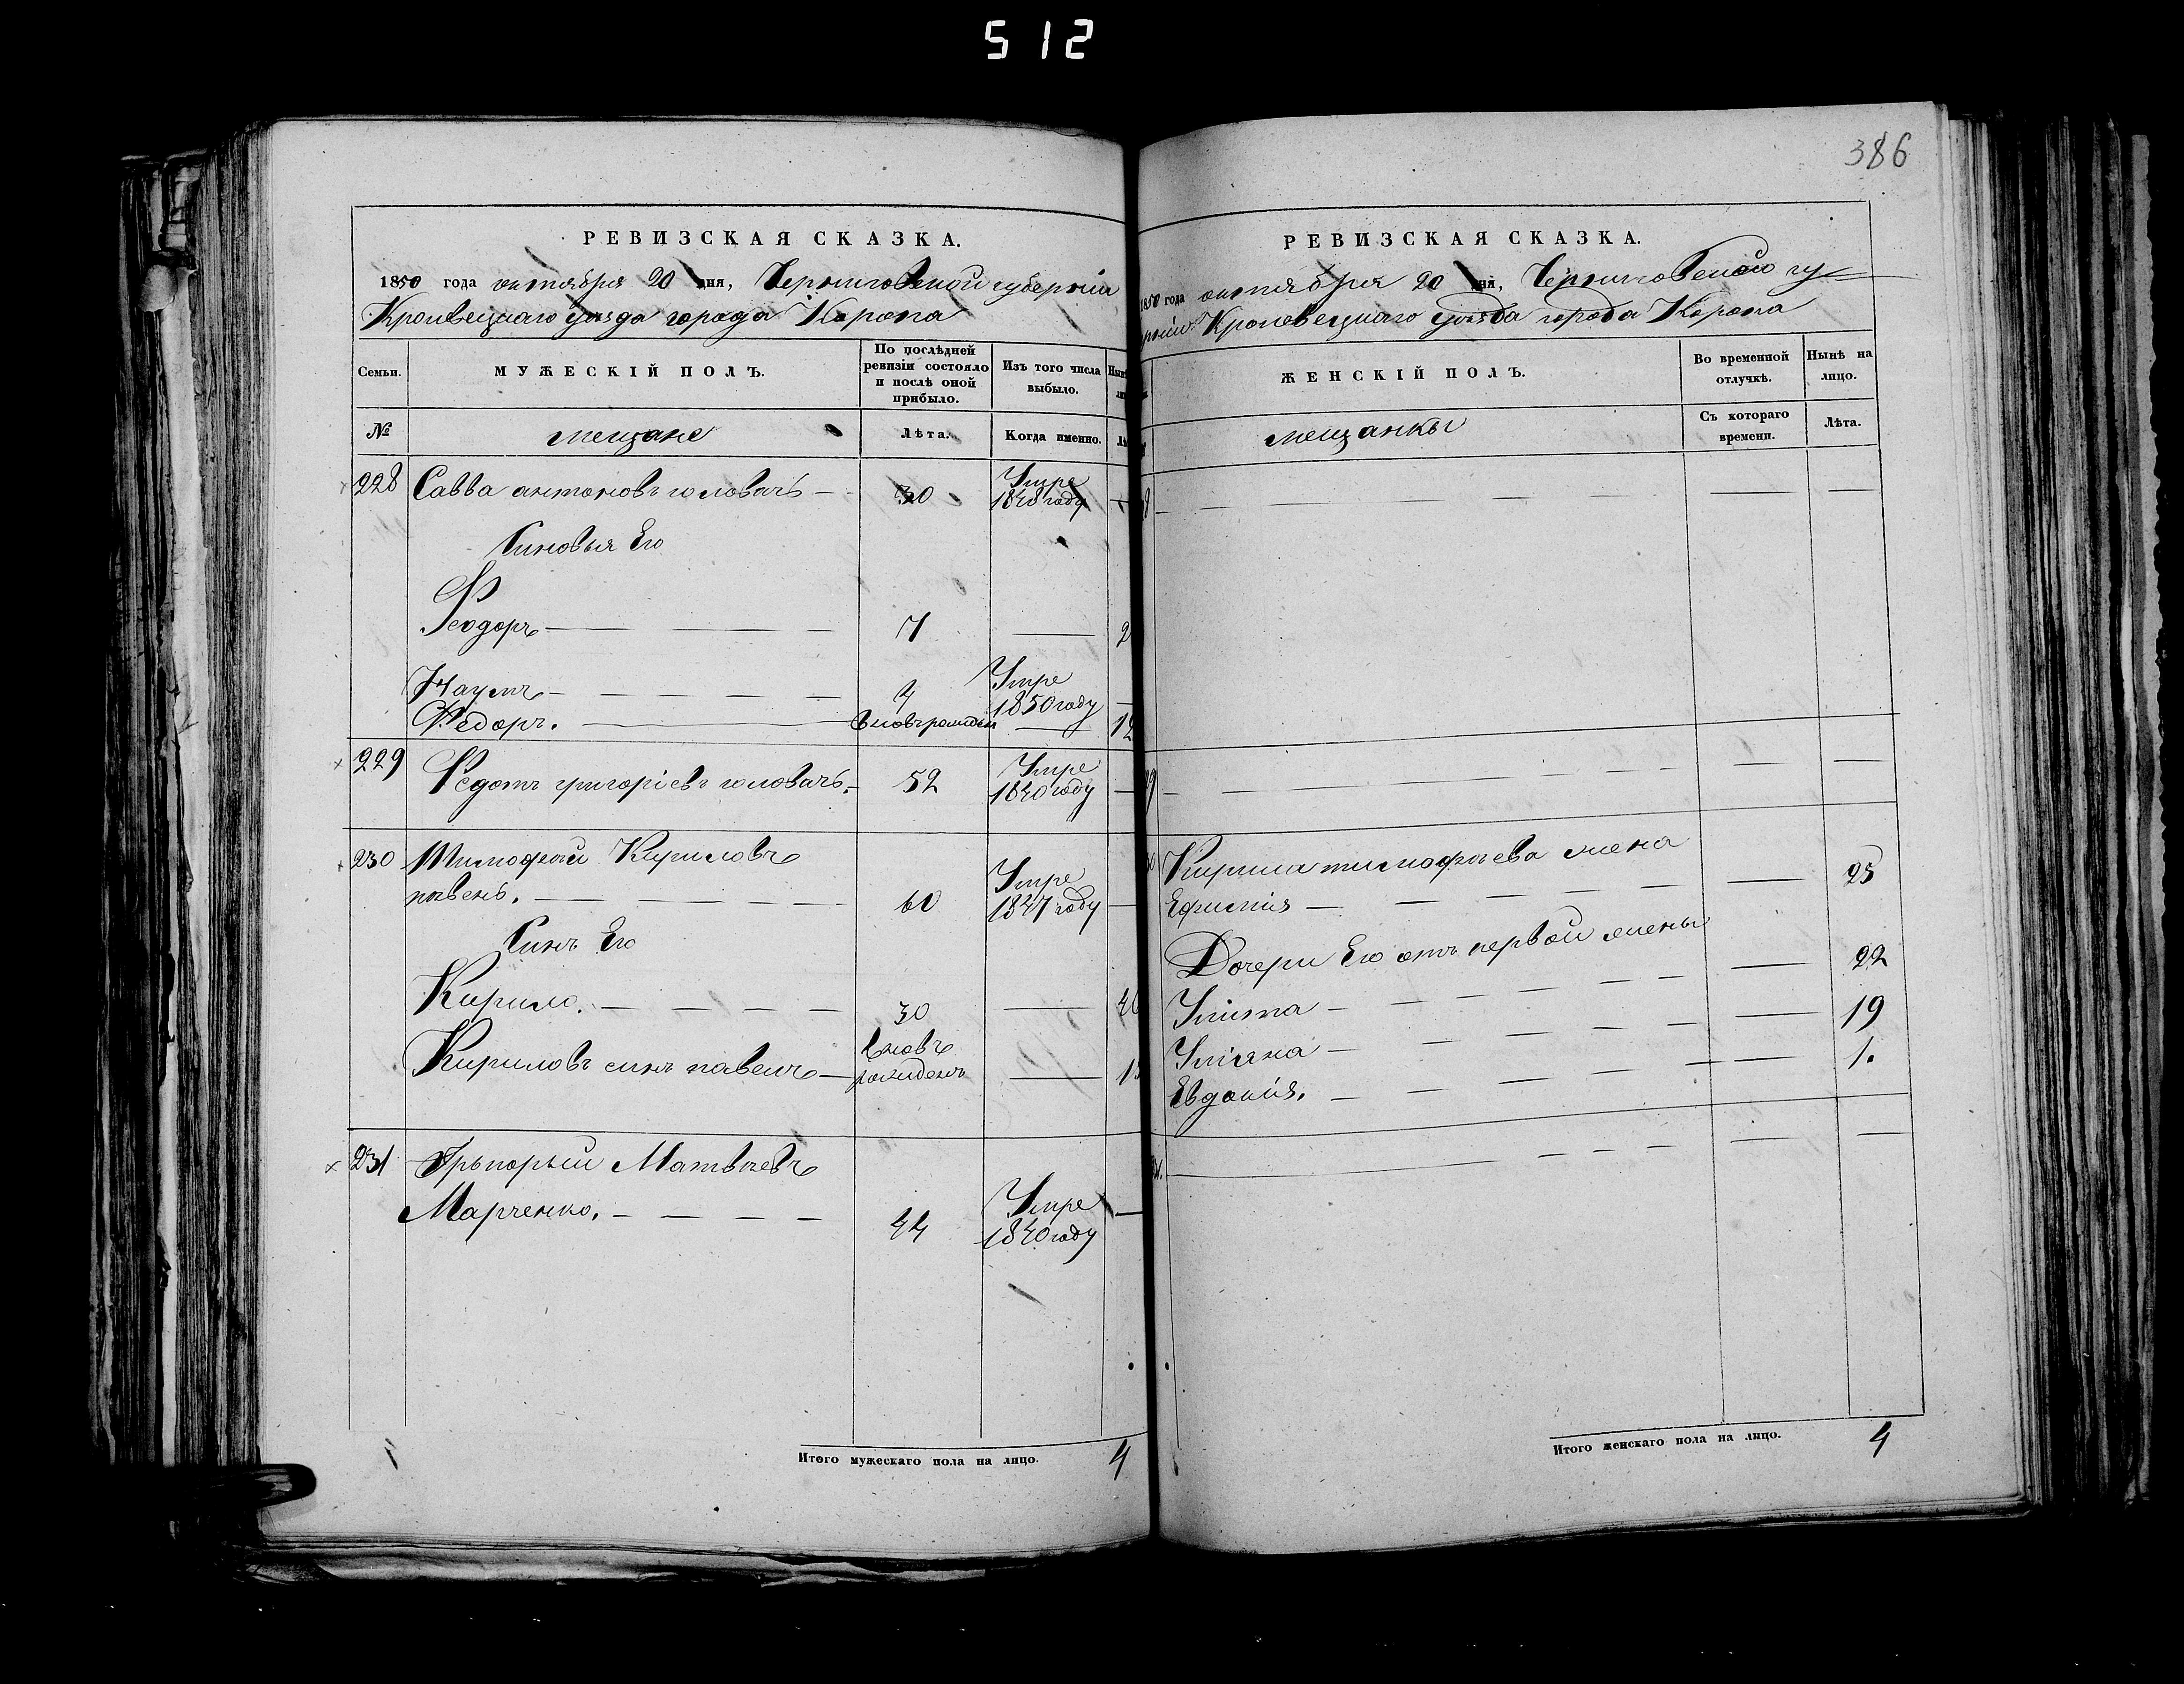 512
РЕВИЗСКАЯ СКАЗКА.
1850 года октября 20 дня, Черниговской губернии
Кролвецкаго уѣзда города Коропа
Семьи. МУЖЕСКІЙ ПОЛЪ. По послѣдней ревизіи состояло и послѣ оной прибыло. Изъ того числа выбыло.
№ мещане Лѣта. Когда именно.
228 Савва антоновъ головачь — 30 Умре 1848 году —
Синовья Его
Феодоръ — 7 — 2
Наумъ — 4 Умре 1850 году —
Федоръ. — вновьрожден — 12
229 Федотъ григоріевъ головачь. — 52 Умре 1840 году —
230 Тимофѣй Кириловъ
павенъ. — 60 Умре 1847 году —
Синъ Его
Кирило. — 30 — 40
Кириловъ синъ павелъ — вновъ рожденъ — 1
231 Грыгорый Матвѣевъ
Марченко. — 44 Умре 1840 году —
Итого мужескаго пола на лицо. 4
386
РЕВИЗСКАЯ СКАЗКА.
1850 года октября 20 дня, Черниговской гу-
Кролевецкаго уѣзда города Коропа
ЖЕНСКІЙ ПОЛЪ. Во временной отлучкѣ. Нынѣ на лицо.
мещанки Съ котораго времени. Лѣта.
Кирила тимофѣева жена
Ефимія — 25
Дочери Его отъ первой жены
22
Уліяна — 19
Евдокія. — 1.
Итого женскаго пола на лицо. 4